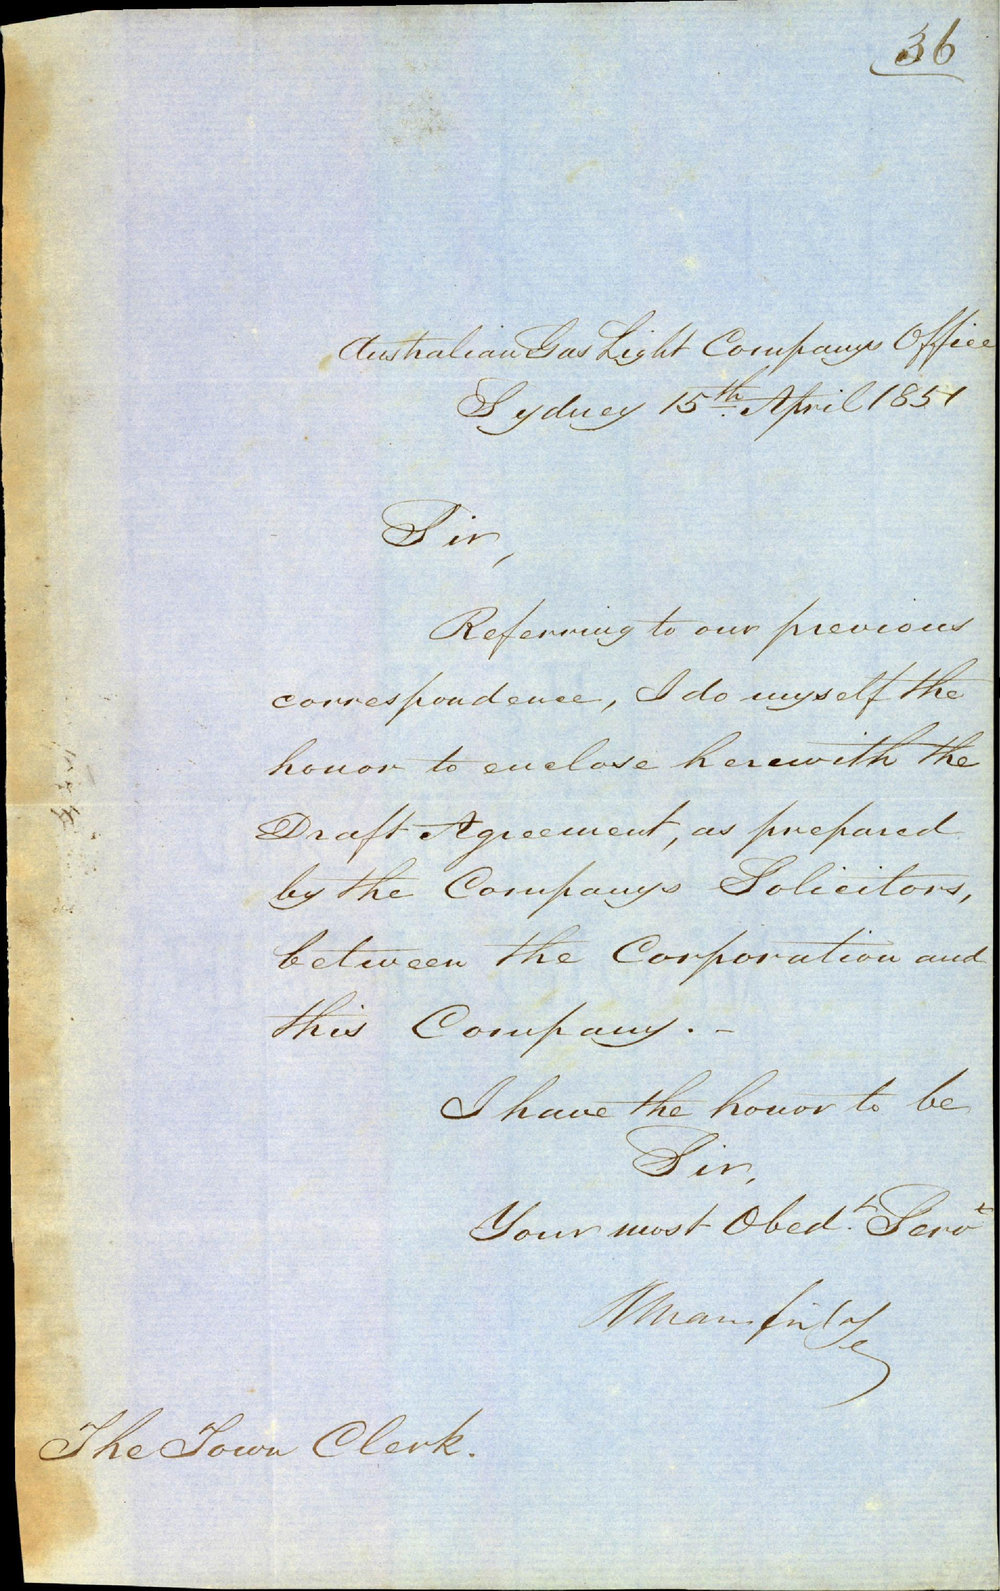 36
Australian Gas Light Companys Office
Sydney 15th. April 1851
Sir,
Referring to our previous
correspondence, I do myself the
honor to enclose herewith the
Draft Agreement, as prepared
by the Companys Solicitors,
between the Corporation and
this Company. -
I have the honor to be
Sir,
Your most Obedt. Servt
The Town Clerk.